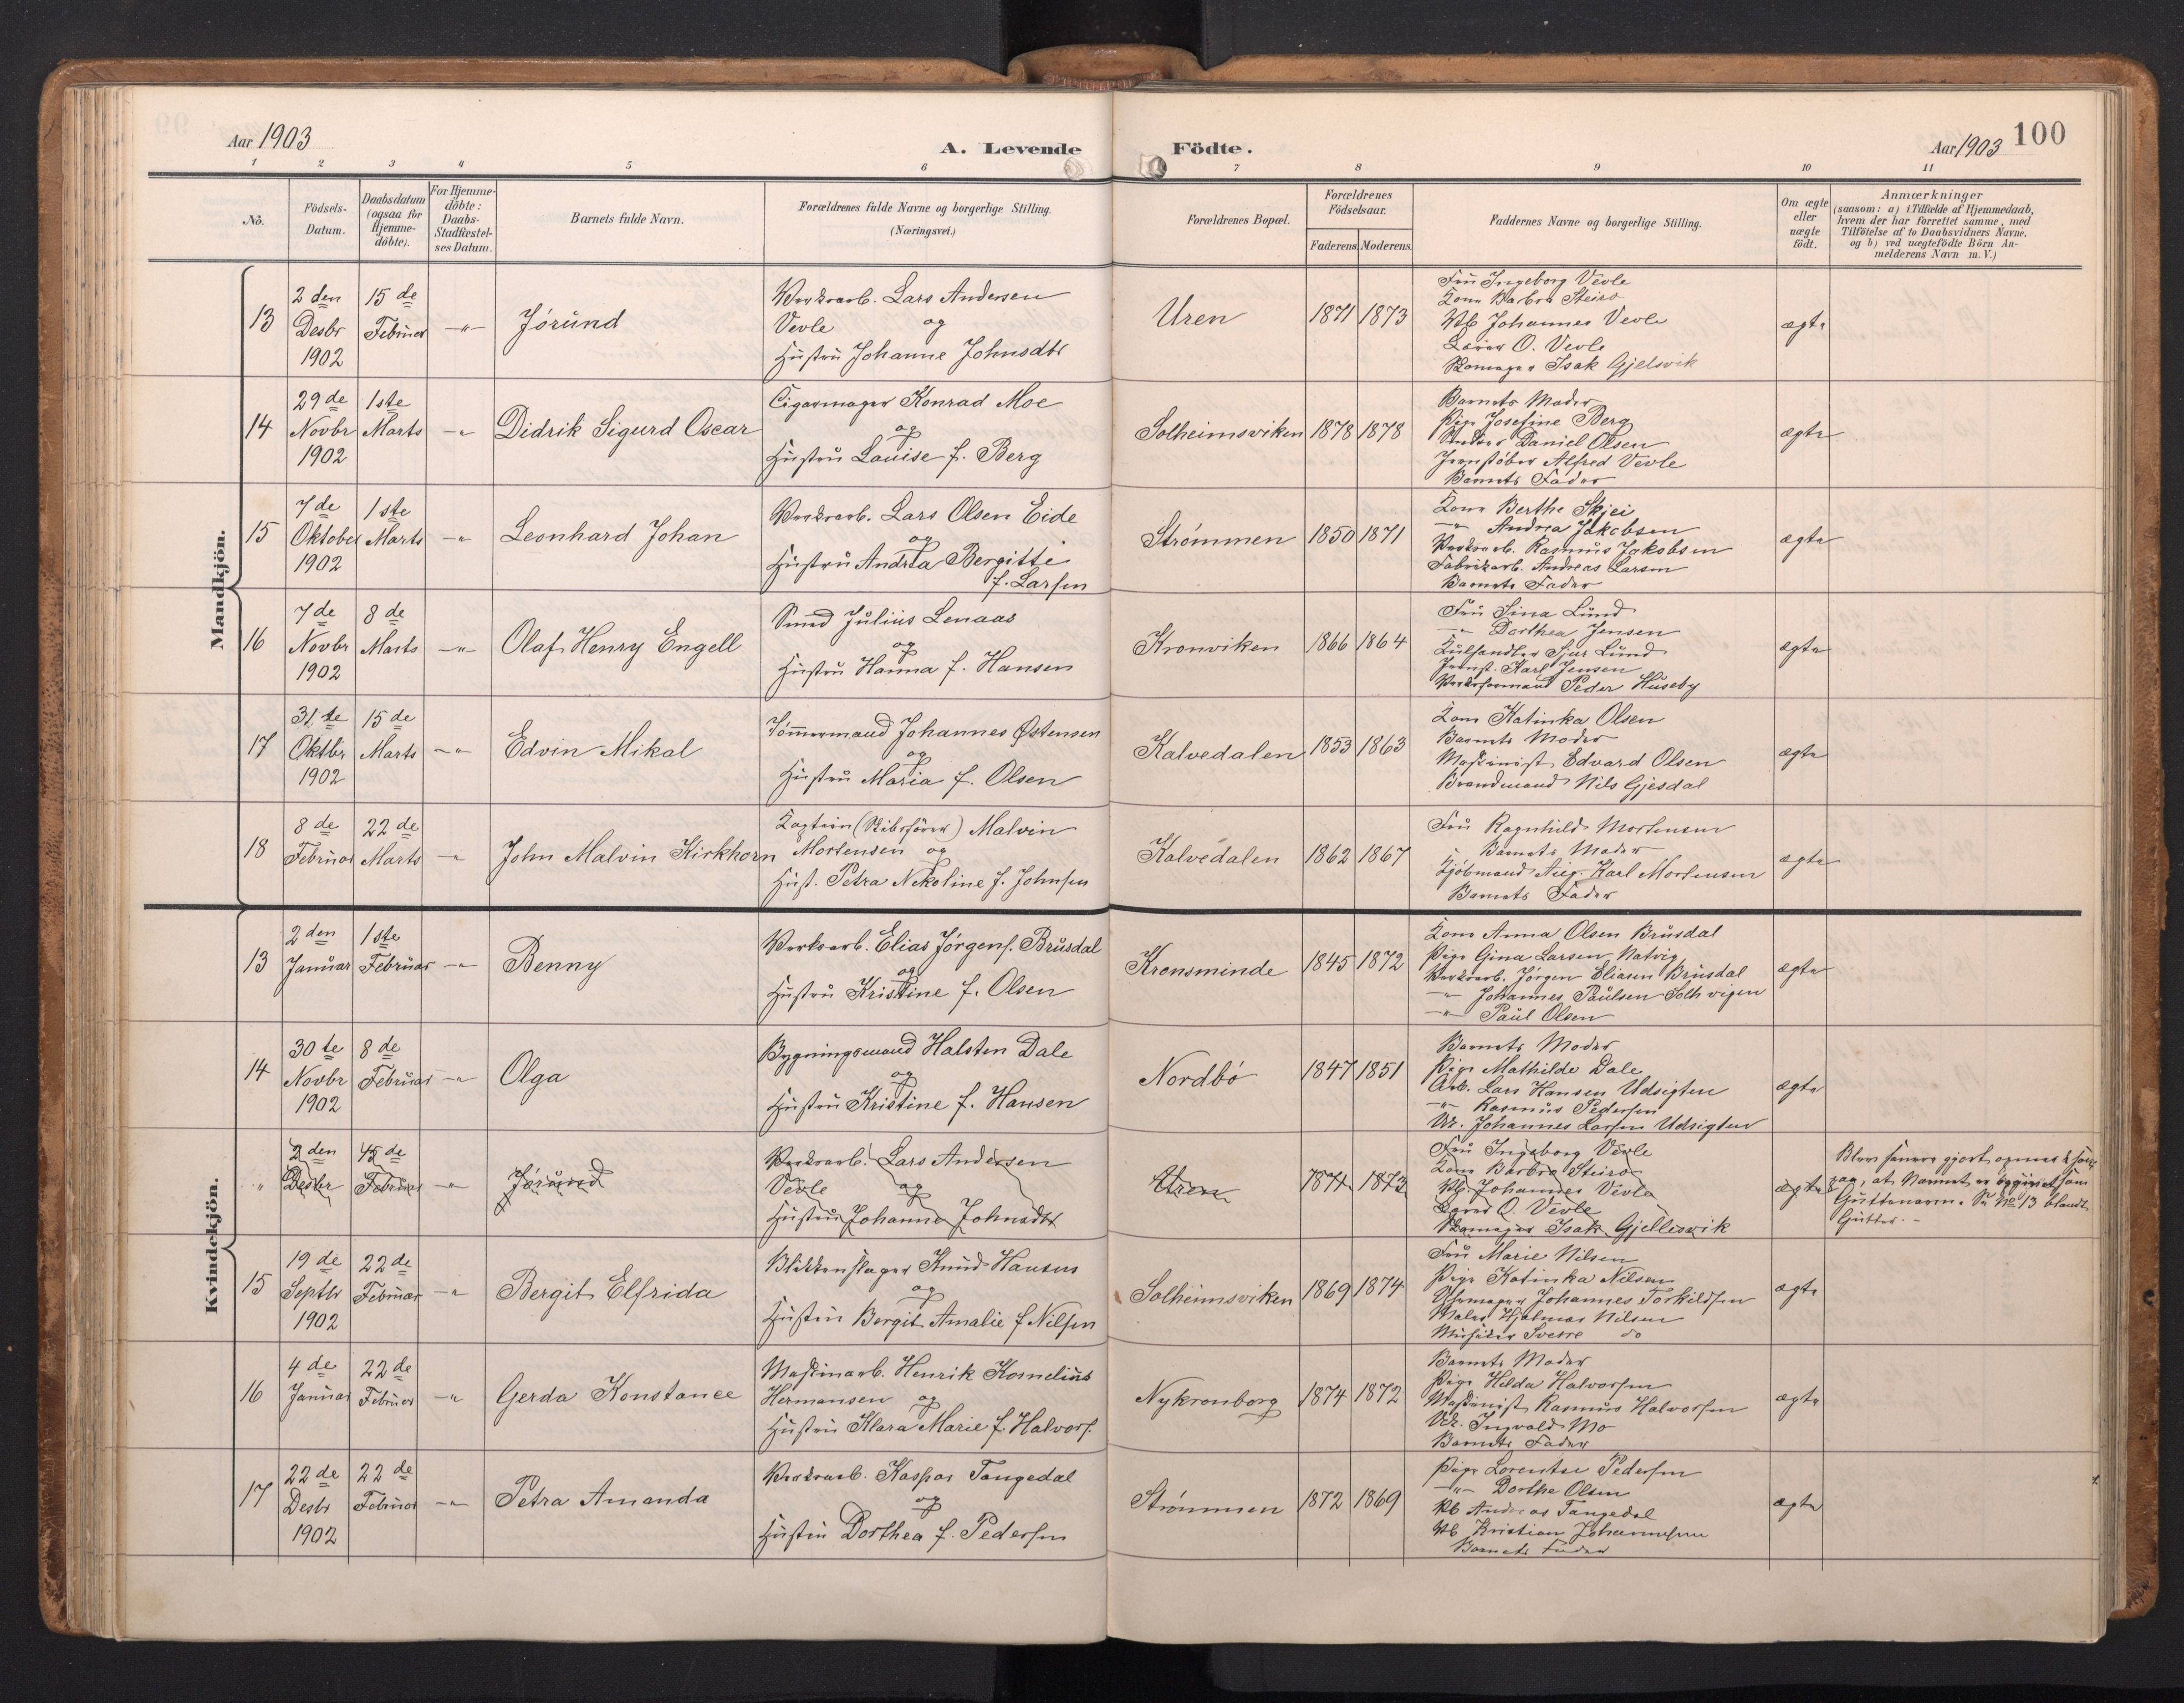 Aar 1903
A. Levende
Födte.
Aar 1903
100
1 2 3 4 5 6 7 8 9 10 11
Nö.
Födsels-
Datum.
Daabsdatum
(ogsaa for
Hjemme-
döbte).
For Hjemme-
döbte:
Daabs-
Stadfæstel-
ses Datum.
Barnets fulde Navn.
Forældrenes fulde Navne og borgerlige Stilling.
(Næringsvei.)
Forældrenes Bopæl.
Forældrenes
Födselsaar.
Faderens. Moderens.
Faddernes Navne og borgerlige Stilling.
Om ægte
eller
uægte
födt.
Anmærkninger
(saasom: a) i Tilfælde af Hjemmedaab,
hvem der har forrettet samme, med
Tilföielse af to Daabsvidners Navne,
og b) ved uægtefödte Börn An-
melderens Navn m.V.)
Mandkjön.
13
2 den
Desbr
1902
15 de
Februar
-"-
Jórund
Verksarb. Lars Andersen
Vevle og
Hustru Johanne Johnsdtr
Uren
1871 1873
Fru Ingeborg Vevle
Kone Barbra Steiro
Vb Johannes Vevle
Lærer O. Vevle
Skomager Isak Gjelsvik
ægte
14
29 de
Novbr
1902
1ste
Marts
-"
Didrik Sigurd Oscar
Cigarmager Konrad Moe
og
Hustru Louise f. Berg
Solheimsviken
1878 1878
Barnets Moder
Pige Josefine Berg
Daniel Olsen
Jernstøber Alfred Vevle
Barnets Fader
ægte
15
7 de
Oktober
1902
1ste
Marts
-"
Leonhard Johan
Verksarb. Lars Olsen Eide
og
Hustru Andrea Bergitte
f. Larsen
Strømmen
1850 1871
Kone Berthe Skjei
-"- Andrea Jakobsen
Verksarb. Rasmus Jakobsen
Fabrikarb. Andreas Larsen
Barnets Fader
ægte
16
7 de
Novbr
1902
8 de
Marts
-"-
Olaf Henry Engell
Smed Julius Lenaas
og
Hustru Hanna f. Hansen
Kronviken
1866 1864
Fru Sina Lund
-"- Dorthea Jensen
Kulhandler Sjur Lund
Jernst. Karl Jensen
Verksformand Peder Huseby
ægte
17
31 te
Oktbr
1902
15 de
Marts
-"-
Edvin Mikal
Tømmermand Johannes Østensen
og
Hustru Maria f. Olsen
Kalvedalen
1853 1863
Kone Katinka Olsen
Barnets Moder
Maskinist Edvard Olsen
Brandmand Nils Gjesdal
ægte
18
8 de
Februar
22 de
Marts
-"
John Malvin Kirkhorn
Kaptein (Skibsfører) Malvin
Mortensen og
Hust. Petra Nikoline f. Johnsen
Kalvedalen
1862 1867
Fru Ragnhild Mortensen
Barnets Moder
Kjøbmand Aug. Karl Mortensen
Barnets Fader
ægte
Kvindekjön.
13
2 den
Januar
1ste
Februar
-"
Benny
Verksarb. Elias Jørgens. Brusdal
og
Hustru Kristine f. Olsen
Kronsminde
1845 1872
Kone Anna Olsen Brusdal
Pige Gina Larsen Natvig
Verksarb. Jørgen Eliasen Brusdal
-"- Johannes Paulsen Solhvigen
-"- Paul Olsen
ægte
14
30 te
Novbr
1902
8 de
Februar
-"
Olga
Bygningsmand Halsten Dale
og
Hustru Kristine f. Hansen
Nordbó
1847 1851
Barnets Moder
Pige Mathilde Dale
Arb. Lars Hansen Udsigten
-"- Rasmus Pedersen
Johannes Larsen Udsigten
ægte
"
2 den
Desbr
15 de
Februar
-"
Jórund
Verksarb. Lars Andersen
Vevle og
Hustru Johanne Johnsdtr
Uren
1871 1873
Fru Ingeborg Vevle
Kone Barbra Steiro
Vb. Johannes Vevle
Lærer O. Vevle
Skomager Isak Gjellesvik
ægte
Blev senere gjort opmerksom
paa, at Navnet er opgivet som
Guttenavn. Se No 13 blandt
Gutter. -
15
19 de
Septbr
1902
22 de
Februar
-"
Bergit Elfrida
Blikkenslager Knud Hansen
og
Hustru Bergit Amalie f Nilsen
Solheimsviken
1869 1874
Fru Marie Nilsen
Pige Katinka Nilsen
Uhrmager Johannes Torkildsen
Maler Hjalmar Nilsen
Musiker Sverre do
ægte
16
4 de
Januar
22 de
Februar
-"
Gerda Konstance
Maskinarb. Henrik Kornelius
Hermansen og
Hustru Klara Marie f. Halvors.
Nykronborg
1874 1872
Barnets Moder
Pige Hilda Halvorsen
Maskinist Rasmus Halvorsen
Ingvald Mo
Barnets Fader
ægte
17
22 de
Desbr
1902
22 de
Februar
-"
Petra Amanda
Verksarb. Kaspar Tangedal
og
Hustru Dorthea f. Pedersen
Strømmen
1872 1869
Pige Lorentse Pedersen
-"- Dorthe Olsen
Vb Andreas Tangedal
Vb Kristian Johannesen
Barnets Fader
ægte